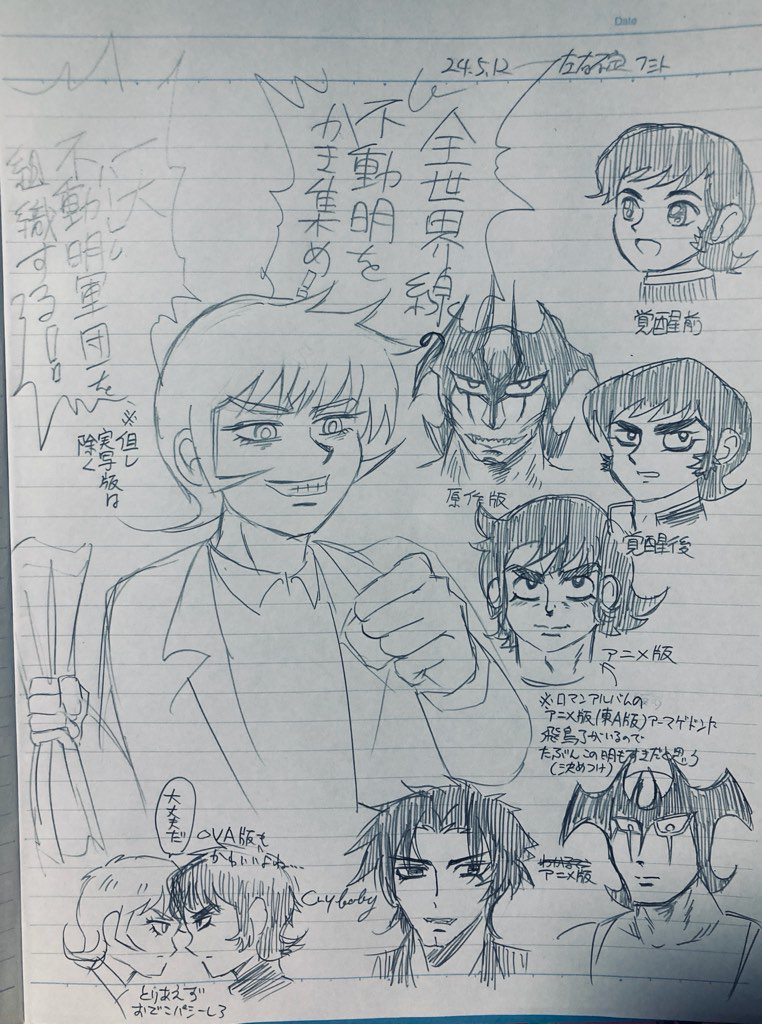 Date
24.5.12
全世界線の
不動明を
かき集め
一大
不動明軍団を
組織する!!
※但し
実写版は
除く
覚醒前
原作版
覚醒後
アニメ版
※ロマンアルバムの
アニメ版(東A版)アーマゲドンに
飛鳥了がいるので
たぶんこの明もすきだと思う
(決めつけ)
大丈夫だ
OVA版も
かわいいよね…
Crybaby
アニメ版
とりあえず
おでこパシーしろ